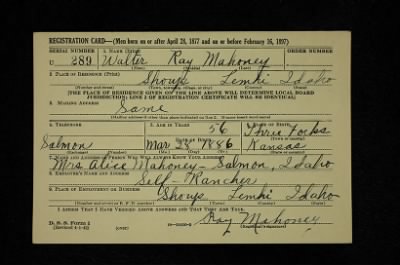 REGISTRATION CARD—(Men born on or after April 28, 1877 and on or before February 16, 1897)
SERIAL NUMBER 1. NAME (Print) ORDER NUMBER
U 289 Walter Ray Mahoney
(First) (Middle) (Last)
2. PLACE OF RESIDENCE (Print)
Shoup Lemhi Idaho
(THE PLACE OF RESIDENCE GIVEN ON THE LINE ABOVE WILL DETERMINE LOCAL BOARD
JURISDICTION; LINE 2 OF REGISTRATION CERTIFICATE WILL BE IDENTICAL)
3. MAILING ADDRESS
Same
4. TELEPHONE 5. AGE IN YEARS 6. PLACE OF BIRTH
56 Three Forks
DATE OF BIRTH
Salmon Mar 28 1886 Kansas
7. NAME AND ADDRESS OF PERSON WHO WILL ALWAYS KNOW YOUR ADDRESS
Mrs Alice Mahoney - Salmon, Idaho
8. EMPLOYER'S NAME AND ADDRESS
Self - Rancher
9. PLACE OF EMPLOYMENT OR BUSINESS
Shoup Lemhi Idaho
I AFFIRM THAT I HAVE VERIFIED ABOVE ANSWERS AND THAT THEY ARE TRUE.
D. S. S. Form 1 Ray Mahoney
(Revised 4-1-42) (Registrant's signature)